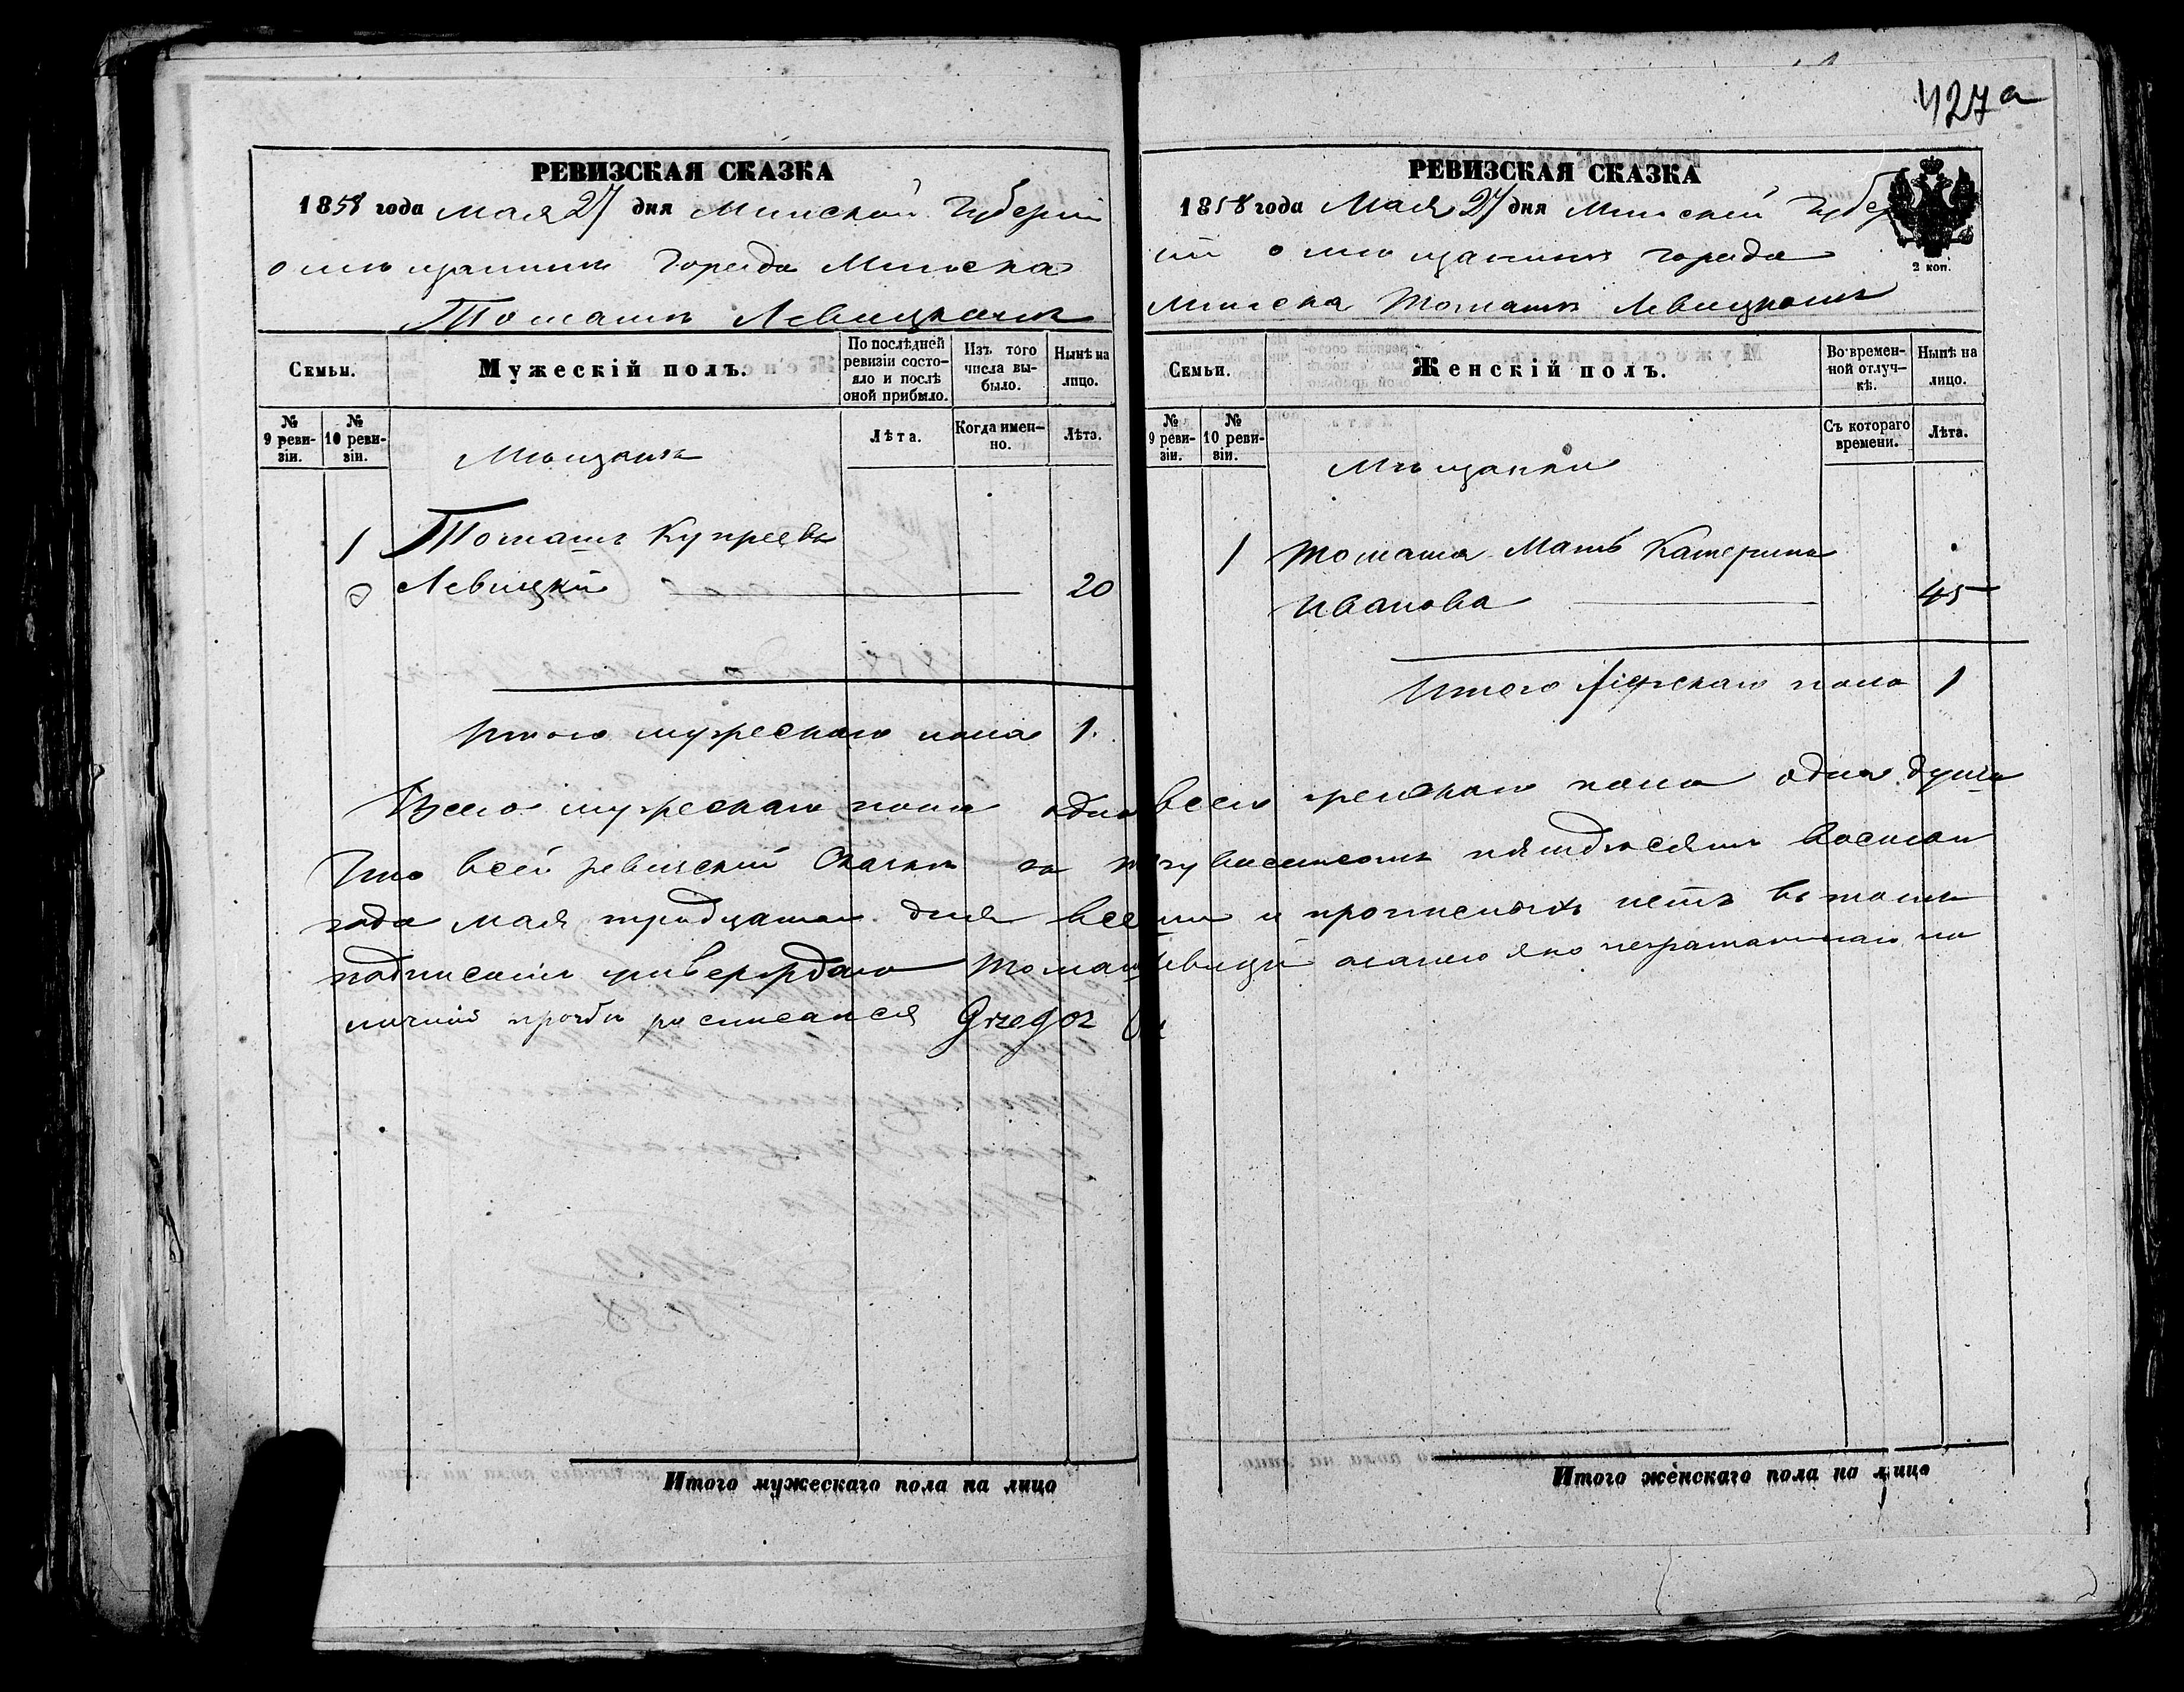 427а
РЕВИЗСКАЯ СКАЗКА
1858 года Мая 27 дня Минской Губерніи
о мѣщанинѣ города Минска
Томашѣ Левицкомъ
Семьи.
Мужескій полъ.
По послѣдней ревизіи состояло и послѣ оной прибыло.
Изъ того числа выбыло.
Нынѣ на лицо.
№ 9 ревизіи.
№ 10 ревизіи.
Лѣта.
Когда именно.
Лѣта.
1 Томашъ Купреевъ
Левицкій 20
Итого мужескаго пола 1.
РЕВИЗСКАЯ СКАЗКА
1858 года Мая 27 дня Минской Губер
ніи о мѣщанинѣ города
Минска Томашѣ Левицкомъ
2 коп.
Семьи.
Женскій полъ.
Во временной отлучкѣ.
Нынѣ на лицо.
№ 9 ревизіи.
№ 10 ревизіи.
Съ котораго времени.
Лѣта.
Мѣщанки
1 Томаша Мать Катерина
Иванова 45
Итого женскаго пола 1
Всего мужескаго пола одна всего женскаго пола одна душа
Что всей ревизской Сказки пятьдесятъ восьмого
года мая тридцатого дня и прописныхъ нетъ въ томъ
подписомъ утверждаю Томашъ Левицкій а за него яко неграмотнаго по
личной прозбѣ росписался Grzegorz
Итого мужескаго пола на лицо
Итого женскаго пола на лицо